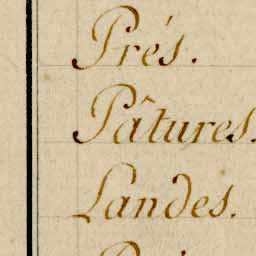 Prés.
Pâtures.
Landes.